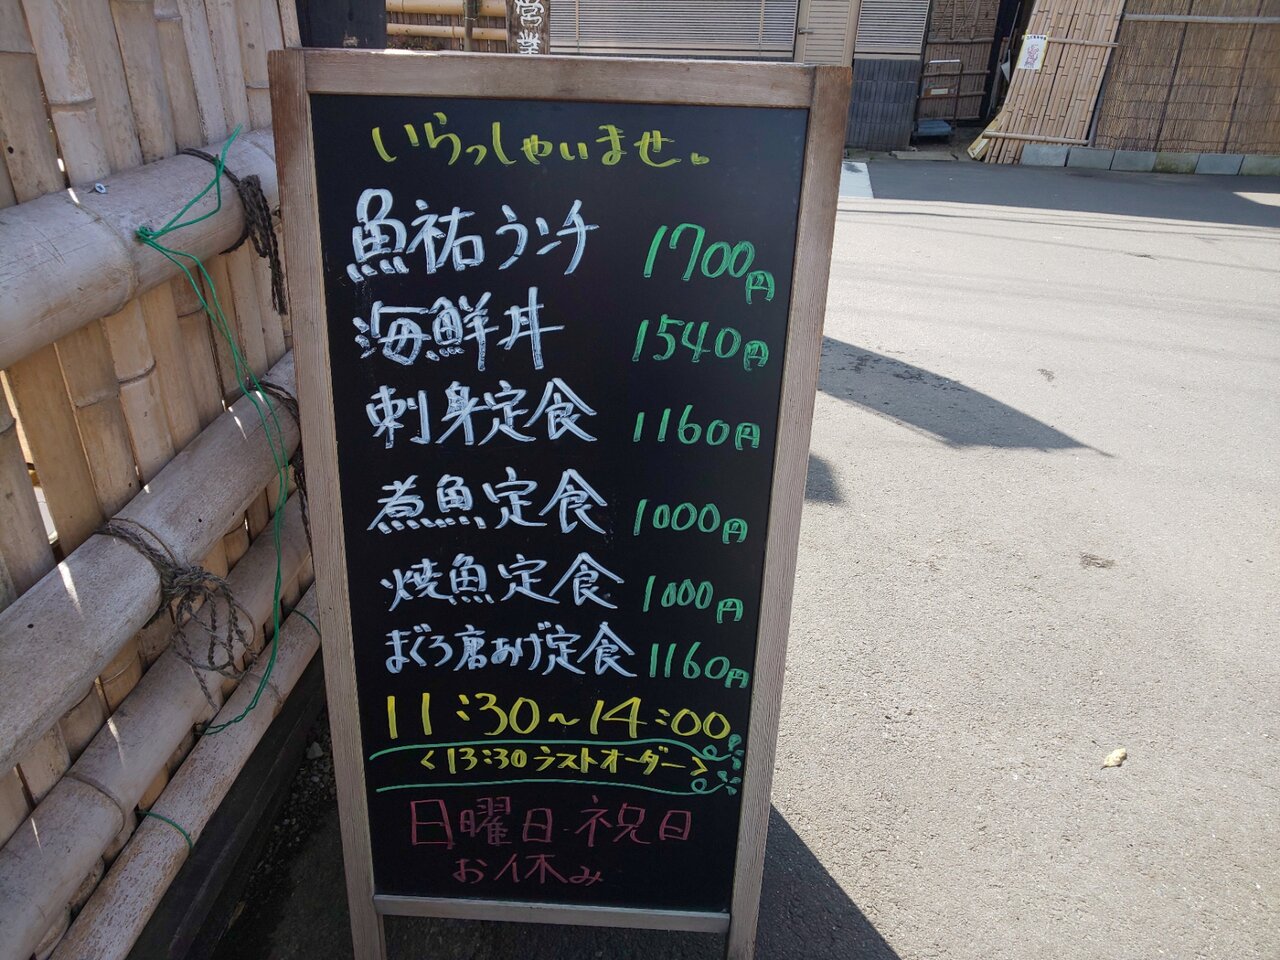 営業
いらっしゃいませ。
魚祐ランチ 1700円
海鮮丼 1540円
刺身定食 1160円
煮魚定食 1000円
焼魚定食 1000円
まぐろ唐あげ定食 1160円
11:30~14:00
<13:30ラストオーダー>
日曜日・祝日
お休み